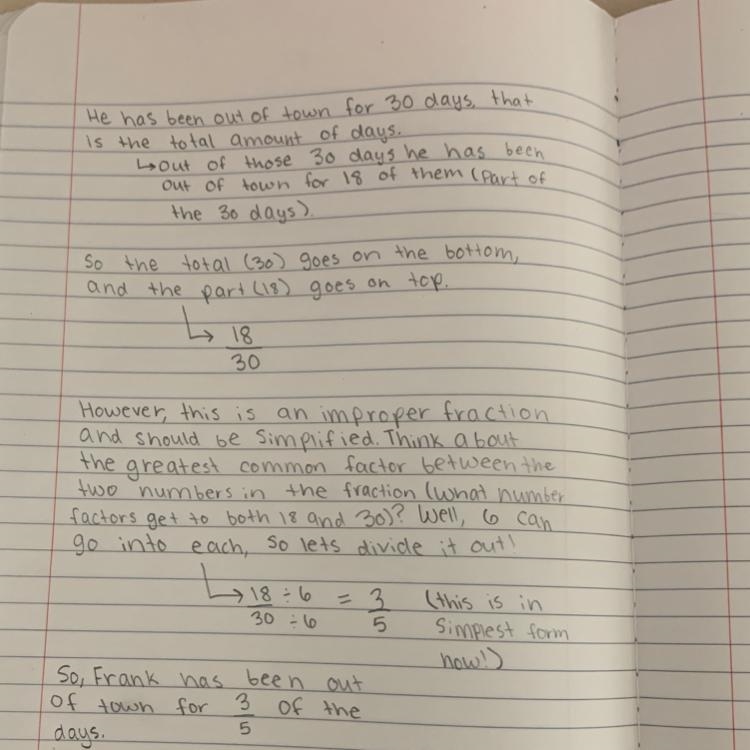 He has been out of town for 30 days, that
is the total amount of days.
↳out of those 30 days he has been
out of town for 18 of them (part of
the 30 days).
So the total (30) goes on the bottom,
and the part (18) goes on top.
↳ 18
30
However, this is an improper fraction
and should be simplified. Think about
the greatest common factor between the
two numbers in the fraction (what number
factors get to both 18 and 30)? Well, 6 can
go into each, so lets divide it out!
↳ 18 ÷ 6 = 3 (this is in
30 ÷ 6 5 simplest form
now!)
So, Frank has been out
of town for 3 of the
5
days.